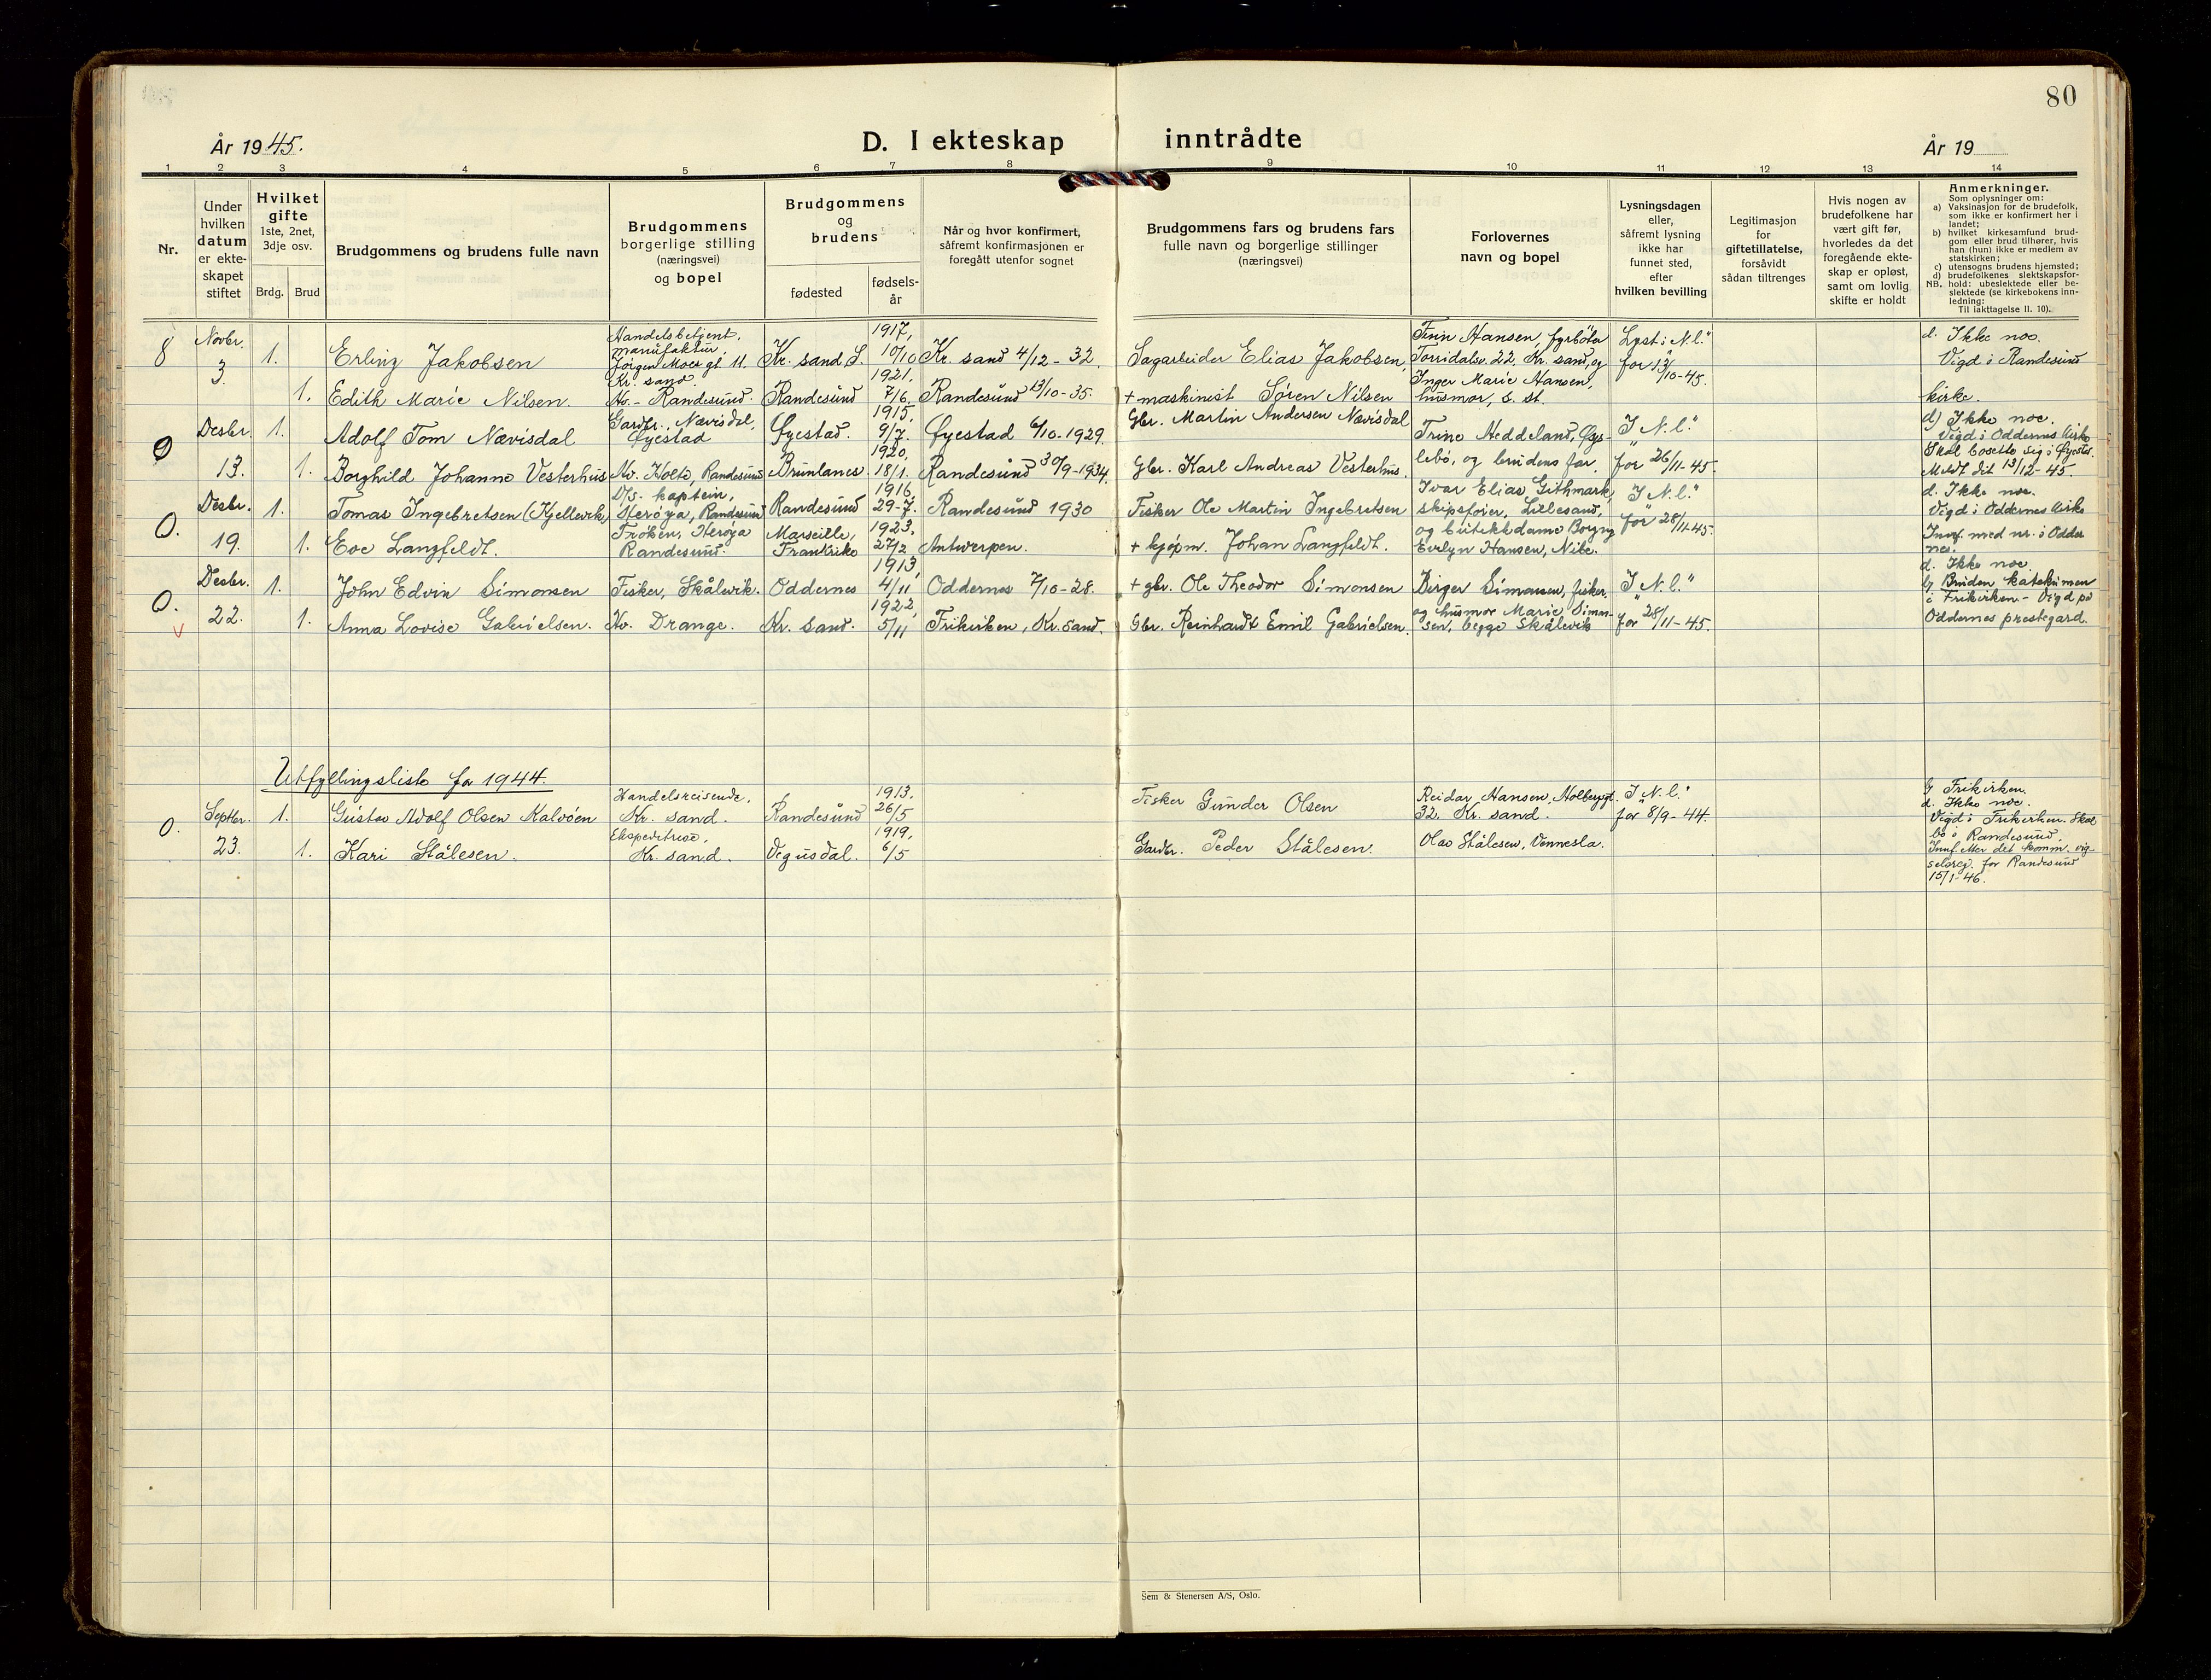 80
År 1945.
D. I ekteskap inntrådte
År 19
1 2 3 4 5 6 7 8 9 10 11 12 13 14
Nr.
Under
hvilken
datum
er ekte-
skapet
stiftet
Hvilket
gifte
1ste, 2net,
3dje osv.
Brdg. Brud
Brudgommens og brudens fulle navn
Brudgommens
borgerlige stilling
(næringsvei)
og bopel
Brudgommens
og
brudens
fødested
fødsels-
år
Når og hvor konfirmert,
såfremt konfirmasjonen er
foregått utenfor sognet
Brudgommens fars og brudens fars
fulle navn og borgerlige stillinger
(næringsvei)
Forlovernes
navn og bopel
Lysningsdagen
eller,
såfremt lysning
ikke har
funnet sted,
efter
hvilken bevilling
Legitimasjon
for
giftetillatelse,
forsåvidt
sådan tiltrenges
Hvis nogen av
brudefolkene har
vært gift før,
hvorledes da det
foregående ekte-
skap er opløst,
samt om lovlig
skifte er holdt
Anmerkninger.
Som oplysninger om:
a) Vaksinasjon for de brudefolk,
som ikke er konfirmert her i
landet;
b) hvilket kirkesamfund brud-
gom eller brud tilhører, hvis
han (hun) ikke er medlem av
statskirken;
c) utensogns brudens hjemsted;
d) brudefolkenes slektskapsfor-
NB. hold: ubeslektede eller be-
slektede (se kirkebokens inn-
ledning:
Til iakttagelse II. 10).
8
Novbr.
3.
1.
Erling Jakobsen
Handelsbetjent,
manufaktur,
Jørgen Moes gt. 11.
Kr. sand.
Kr. sand S.
1917,
10/10
Kr. sand 4/12 - 32.
Sagarbeider Elias Jakobsen,
Finn Hansen, fyrbøter
Torridalsv. 22, Kr. sand, og
Inger Marie Hansen,
husmor, s. st.
Lyst i "N.l."
for 13/10-45.
d. Ikke noe.
Vigd i Randesund
kirke.
1.
Edith Marie Nilsen.
Hv. - Randesund.
Randesund
1921,
7/6
Randesund 13/10-35.
+ maskinist Søren Nilsen
O
Desbr.
13.
1.
Adolf Tom Nævisdal
Gardbr., Nævisdal,
Øyestad
Øyestad.
1915,
9/7.
Øyestad 6/10-1929.
Gbr. Martin Andersen Nævisdal
Trine Heddeland, Øys-
lebø, og brudens far.
I "N.l."
for 26/11-45.
d) Ikke noe.
Vigd i Oddernes kirke
Skal bosette sig i Øyestad.
Meldt dit 13/12-45.
1.
Borghild Johanne Vesterhus
Hv. Holte, Randesund
Brunlanes.
1920,
18/1.
Randesund 30/9-1934.
Gbr. Karl Andreas Vesterhus.
O.
Desbr.
19.
1.
Tomas Ingebretsen (Kjellevik)
D/s. kaptein,
Herøya, Randesund
Randesund
1916,
29-7.
Randesund 1930
Fisker Ole Martin Ingebretsen
Ivar Elias Githmark,
skipsfører, Lillesand,
og butikkdame Borgny
Evelyn Hansen, Nibe.
I "N.l."
for 28/11-45.
d. Ikke noe.
Vigd i Oddernes kirke
Innf. med nr. i Odder
nes.
1.
Eve Langfeldt.
Frøken, Herøya
Randesund.
Marseille,
Frankrike
1923,
27/2
Antwerpen.
+ kjøpm. Johan Langfeldt.
O.
Desbr.
22.
1.
John Edvin Simonsen
Fisker, Skålevik.
Oddernes
1913,
4/11
Oddernes 7/10-28.
+ gbr. Ole Theodor Simonsen
Birger Simonsen, fisker,
og husmor Marie Simon-
sen, begge Skålevik
I "N.l."
for 28/11-45.
d. Ikke noe.
b) Bruden katekumen
i Frikirken. - Vigd på
Oddernes prestegard.
1.
Anna Lovise Gabrielsen.
Hv. Drange.
Kr. sand.
1922,
5/11
Frikirken, Kr. sand.
Gbr. Reinhardt Emil Gabrielsen.
Utfyllingsliste for 1944.
O.
Septbr.
23.
1.
Gustav Adolf Olsen Kalvøen
Handelsreisende,
Kr. sand.
Randesund
1913.
26/5
Fisker Gunder Olsen
Reidar Hansen, Holbergsgt.
32. Kr. sand.
I "N.l."
for 8/9-44.
b) Frikirken.
d. Ikke noe.
Vigd i Frikirken. Skal
bo i Randesund.
Innf. etter det komm. vig-
selsreg. for Randesund
15/1-46.
1.
Kari Stålesen.
Ekspeditrise,
Kr. sand.
Vegusdal.
1919,
6/5
Gardbr. Peder Stålesen.
Olav Stålesen, Vennesla.
Sem & Stenersen A/S, Oslo.